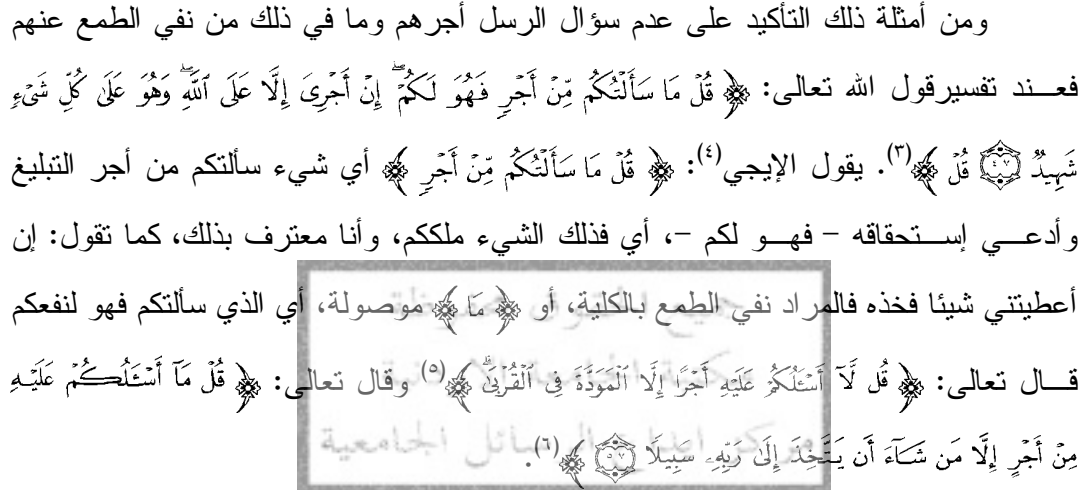 ومن أمثلة ذلك التأكيد على عدم سؤال الرسل أجرهم وما في ذلك من نفي الطمع عنهم
فعـــند تفسيرقول الله تعالى: ﴿ قُلْ مَا سَأَلْتُكُم مِّنْ أَجْرٍ فَهُوَ لَكُمْ ۖ إِنْ أَجْرِىَ إِلَّا عَلَى ٱللَّهِ ۖ وَهُوَ عَلَىٰ كُلِّ شَىْءٍ
شَهِيدٌ ٤٧ قُلْ ﴾(٣). يقول الإيجي(٤): ﴿ قُلْ مَا سَأَلْتُكُم مِّنْ أَجْرٍ ﴾ أي شيء سألتكم من أجر التبليغ
وأدعـــي إســـتحقاقه – فهـــو لكم –، أي فذلك الشيء ملككم، وأنا معترف بذلك، كما تقول: إن
أعطيتني شيئا فخذه فالمراد نفي الطمع بالكلية، أو ﴿ مَا ﴾ موصولة، أي الذي سألتكم فهو لنفعكم
قـــال تعالى: ﴿ قُل لَّآ أَسْـَٔلُكُمْ عَلَيْهِ أَجْرًا إِلَّا ٱلْمَوَدَّةَ فِى ٱلْقُرْبَىٰ ۗ ﴾(٥) وقال تعالى: ﴿ قُلْ مَآ أَسْـَٔلُكُمْ عَلَيْهِ
مِنْ أَجْرٍ إِلَّا مَن شَآءَ أَن يَتَّخِذَ إِلَىٰ رَبِّهِۦ سَبِيلًا ٥٧ ﴾(٦).